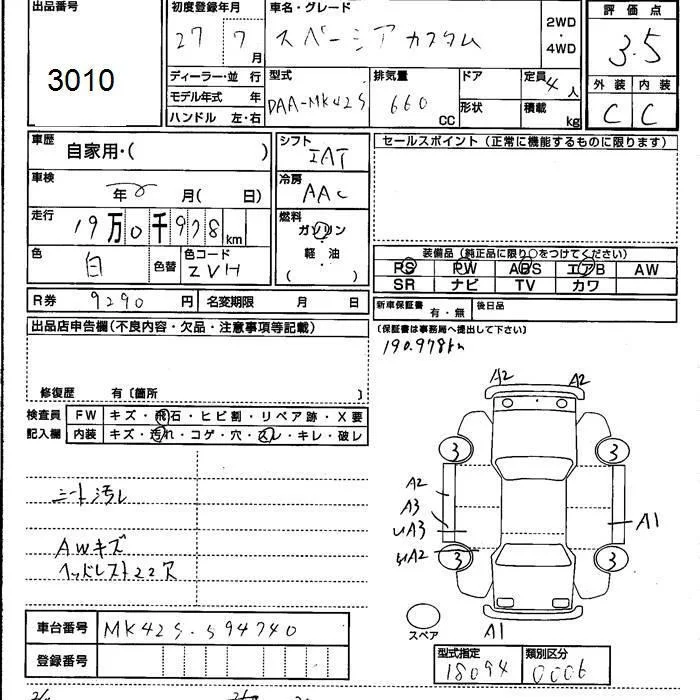 出品番号
3010
初度登録年月
27 7月
車名・グレード
スペーシアカスタム
2WD
・
4WD
評価点
3.5
外装 内装
C C
ディーラー・並行
モデル年式 年
ハンドル 左・右
型式
DAA-MK42S
排気量
660 CC
ドア
形状
定員 4人
積載 kg
車歴
自家用・( )
車検
年 月( 日)
走行
19万0千978km
色
白
色替
色コード
ZVH
シフト
IAT
冷房
AAC
燃料
ガソリン
・
軽油
( )
セールスポイント(正常に機能するものに限ります)
装備品(純正品に限り○をつけてください)
PS PW ABS エアB AW
SR ナビ TV カワ
R券 9290円
名変期限 月 日
新車保証書 有・無
後日品
(保証書は事務局へ提出して下さい)
190.978km
出品店申告欄(不良内容・欠品・注意事項等記載)
修復歴 有〔箇所 〕
検査員記入欄
FW キズ・飛石・ヒビ割・リペア跡・X要
内装 キズ・汚れ・コゲ・穴・スレ・キレ・破レ
シート汚レ
AWキズ
ヘッドレスト22穴
A2 A2
3 3
A2
A3
A3
A2
A1
3 3
A1
スペア
車台番号 MK42S-594740
登録番号
型式指定 18094
類別区分 0006